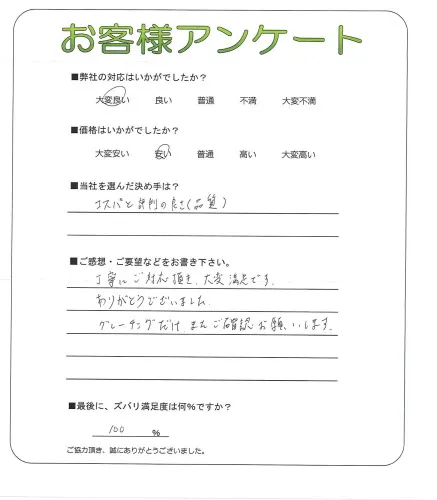 お客様アンケート
■弊社の対応はいかがでしたか？
大変良い 良い 普通 不満 大変不満
■価格はいかがでしたか？
大変安い 安い 普通 高い 大変高い
■当社を選んだ決め手は？
コスパと評判の良さ(品質)
■ご感想・ご要望などをお書き下さい。
丁寧にご対応頂き、大変満足です。
ありがとうございました。
グレーチングだけまたご確認お願いします。
■最後に、ズバリ満足度は何%ですか？
100 %
ご協力頂き、誠にありがとうございました。